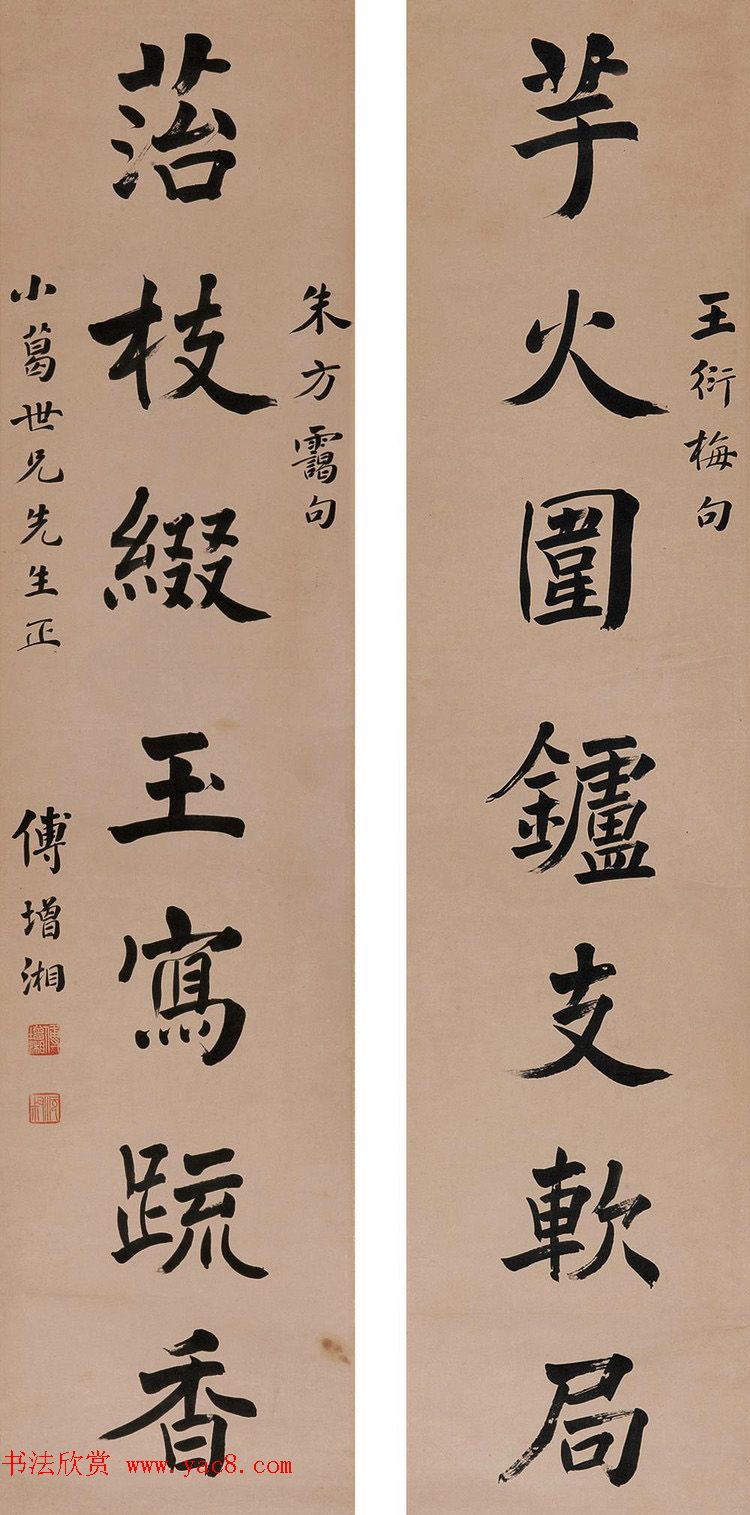 王衍梅句
芋火圍鑪支軟局
朱方靄句
菭枝綴玉寫疏香
小葛世兄先生正
傅增湘
傅增湘
沅叔
书法欣赏 www.yac8.com